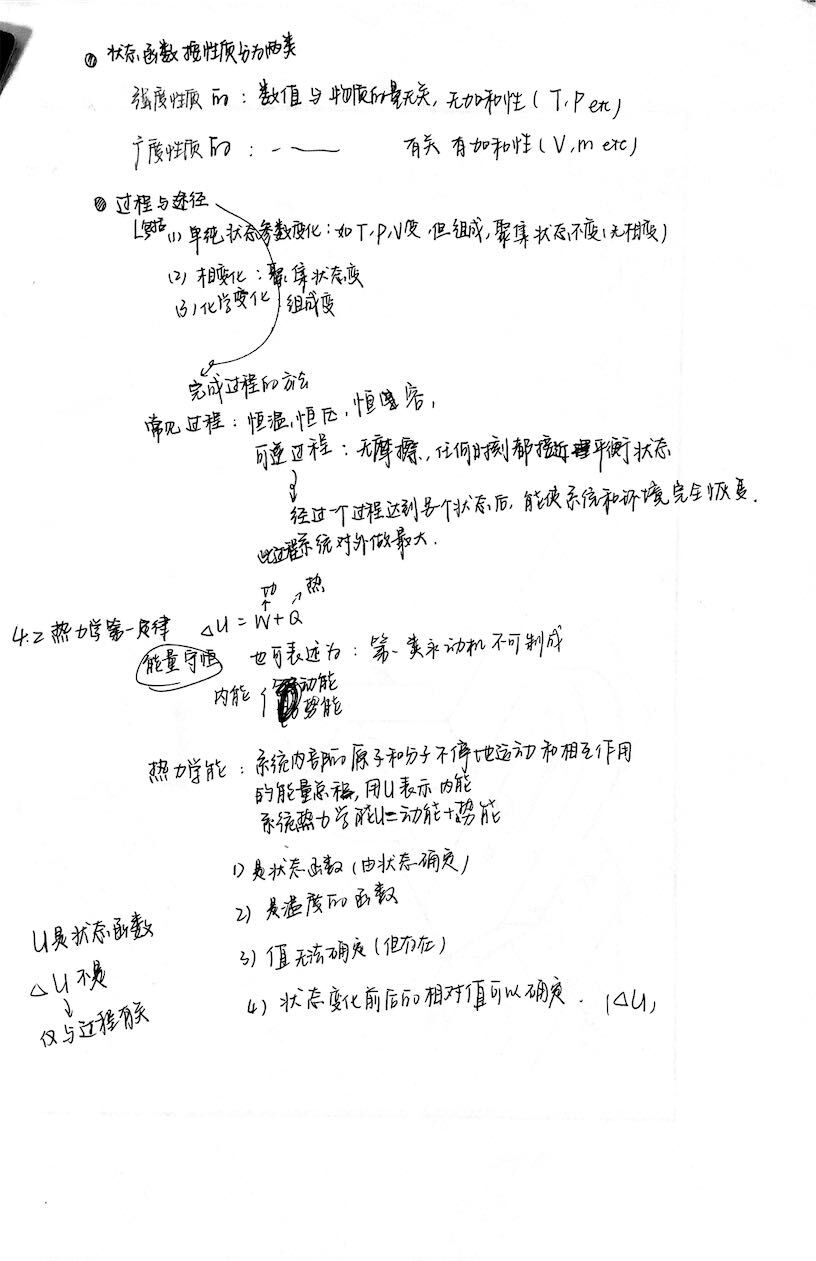 状态函数按性质分为两类
强度性质的：数值与物质的量无关，无加和性（T,P etc）
广度性质的：-- —— 有关 有加和性（V,m etc）
过程与途径
包括 (1) 单纯状态参数变化：如T,P,V变，但组成，聚集状态不变（无相变）
(2) 相变化：聚集状态变
(3) 化学变化：组成变
完成过程的方法
常见过程：恒温，恒压，恒容，
可逆过程：无摩擦，任何时刻都接近平衡状态
经过一个过程达到另个状态后，能使系统和环境完全恢复．
此过程系统对外做最大．
功 热
4.2 热力学第一定律 △U = W+Q
能量守恒 也可表述为：第一类永动机不可制成
内能 { 动能
势能
热力学能：系统内部的原子和分子不停地运动和相互作用
的能量总和，用U表示 内能
系统热力学能U=动能+势能
1) 是状态函数（由状态确定）
2) 是温度的函数
U是状态函数
3) 值无法确定（但存在）
△U不是
4) 状态变化前后的相对值可以确定．（△U）
仅与过程有关